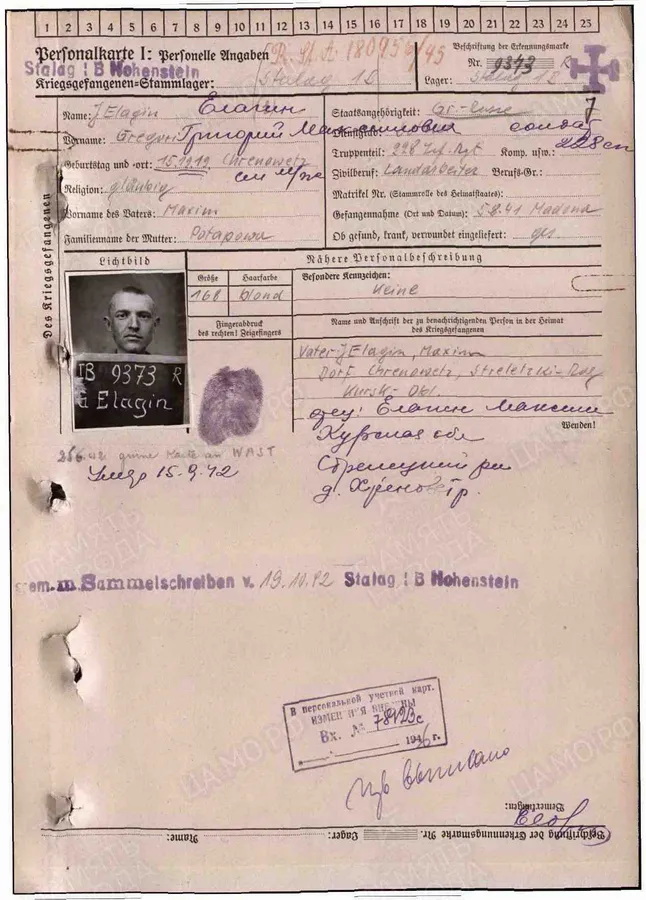 1 2 3 4 5 6 7 8 9 10 11 12 13 14 15 16 17 18 19 20 21 22 23 24 25
Personalkarte I: Personelle Angaben
R. St. A. 180956/45
Beschriftung der Erkennungsmarke
Nr. 9373 R
Stalag I B Hohenstein
Stalag IB
Lager: Stalag IB
Kriegsgefangenen-Stammlager:
Des Kriegsgefangenen
Name: JElagin Елагин
Staatsangehörigkeit:
Vorname: Gregori Григорий Максимович солдат
Truppenteil: 228 Inf. Rgt Komp. usw.: 228 сп
Geburtstag und -ort: 15.12.19. Chrenowetz
Zivilberuf: Landarbeiter Berufs-Gr.:
Religion: gläubig
Matrikel Nr. (Stammrolle des Heimatstaates):
Vorname des Vaters: Maxim
Gefangennahme (Ort und Datum): 5.8.41 Madona
Familienname der Mutter: Potapowa
Ob gesund, krank, verwundet eingeliefert: ges
Lichtbild
Nähere Personalbeschreibung
Größe Haarfarbe Besondere Kennzeichen:
168 blond Keine
Fingerabdruck
des rechten! Zeigefingers
Name und Anschrift der zu benachrichtigenden Person in der Heimat
des Kriegsgefangenen
IB 9373 R
Elagin
Vater JElagin, Maxim
Dorf Chrenowetz, Streletzki-Ray
Kursk-Obl.
отец: Елагин Максим
Wenden!
Курская обл
Стрелецкий рн
д. Хреновец
grüne Karte an WAST
Умер 15.9.42
gem. m. Sammelschreiben v. 19.10.42 Stalag I B Hohenstein
В персональной учетной карт.
ИЗМЕНЕНИЯ ВНЕСЕНЫ
Вх. № 78123с
1946 г.
Bemerkungen:
Beschriftung der Erkennungsmarke Nr. Lager: Name:
ПАМЯТЬ НАРОДА
ЦАМО РФ